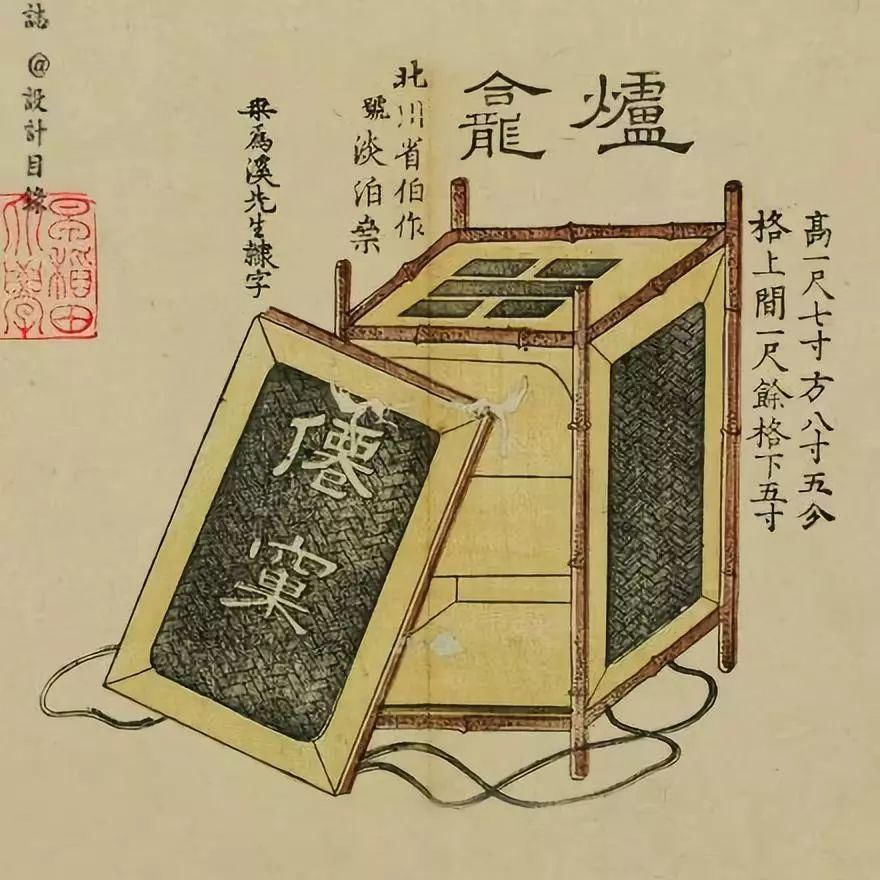 爐龕
高一尺七寸方八寸五分
格上間一尺餘格下五寸
北川省伯作
號淡泊
為溪先生隷字
僊窠
誌@設計目錄
早稲田
大學